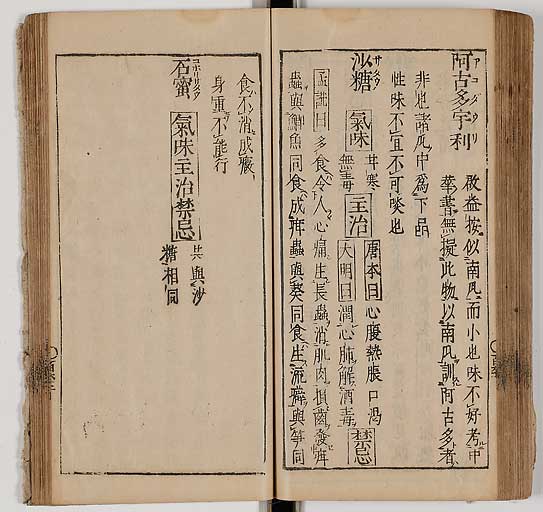 阿古多宇利
アコダウリ
啟益按似南瓜而小也味不好考中
華書無授此物以南瓜訓阿古多者
非也諸瓜中爲下品
性味不宜不可啖也
沙糖 氣味 甘寒 無毒 主治 唐本曰心腹熱脹口渴 大明日潤心肺解酒毒 禁忌
サタウ
孟詵曰多食令人心痛生長蟲消肌肉損齒發疳
蟲與鯽魚同食成疳蟲與葵同食生流癖與笋同
食不消成癥
身重不能行
石蜜 氣味主治禁忌 共與沙糖相同